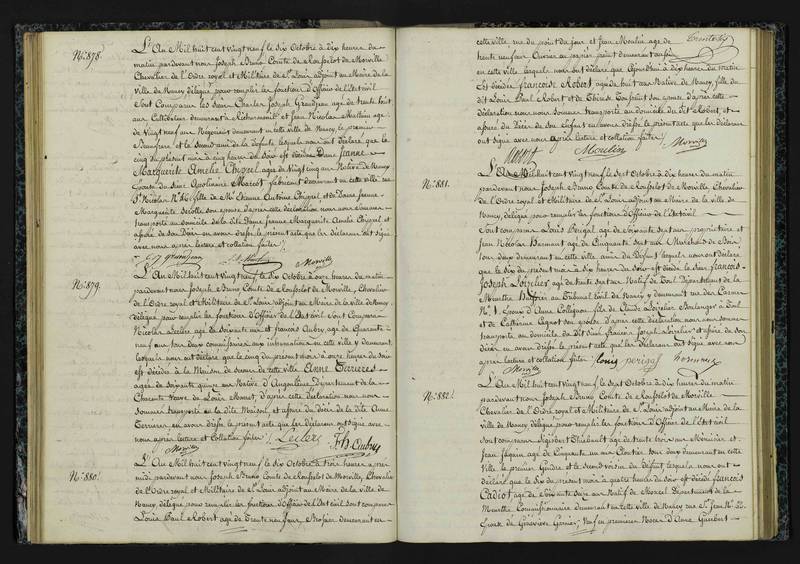 N.º 878.
L'An Mil huit cent vingt neuf le six Octobre à dix heures du
matin pardevant nous Joseph Bruno Comte de Rousselot de Morville
Chevalier de l'Ordre royal et Militaire de S.t Louis adjoint au Maire de la
Ville de Nancy délégué pour remplir les fonctions d'Officier de l'Etat civil
Sont Comparus les Sieurs Charles Joseph Grandjean agé de trente huit
ans demeurant à et Jean Nicolas Mathieu agé
de Vingt neuf ans Négociant demeurant en cette ville de Nancy le premier
et le second ami de la défunte lesquels nous ont déclaré que le
cinq du présent mois à cinq heures du soir est décédée Dame Jeanne
Marguerite Amélie Chippel agée de vingt cinq ans Native de Nancy
Epouse du Sieur Apolinaire Marcot fabricant demeurant en cette ville rue
S.t Nicolas N.º fille de M.r Etienne Antoine Chippel et de Dame Jeanne
Marguerite son épouse d'après cette déclaration nous nous sommes
transporté au domicile de la dite Dame Jeanne Marguerite Amélie Chippel et
assuré de son Décès en avons dressé le présent acte que les déclarants ont signé
avec nous après lecture et collation faites.
Grandjean Morville
N.º 879.
L'An Mil huit cent vingt neuf le six Octobre à onze heures du matin
pardevant nous Joseph Bruno Comte de Rousselot de Morville, Chevalier
de l'Ordre royal et Militaire de S.t Louis adjoint au Maire de la Ville de Nancy
délégué pour remplir les fonctions d'Officier de l'Etat civil Sont Comparus
Nicolas Leclerc agé de soixante six et françois Aubry agé de Quarante
neuf ans tous deux commissaires aux inhumations en cette ville y demeurant
lesquels nous ont déclaré que le cinq du présent mois à onze heures du soir
est décédée à la Maison de secours de cette ville Anne Terrieres
agée de soixante quinze ans Native d'Angoulême Département de la
Charente Veuve de Louis d'après cette déclaration nous nous
sommes transporté en la dite Maison, et assuré du décès de la dite Anne
Terrieres en avons dressé le présent acte que les déclarants ont signé avec
nous après lecture et Collation faites.
Morville Leclerc fch. Aubry
N.º 880.
L'An Mil huit cent vingt neuf le six Octobre à trois heures après
midi pardevant nous Joseph Bruno Comte de Rousselot de Morville, Chevalier
de l'Ordre royal et Militaire de S.t Louis adjoint au Maire de la ville de
Nancy, délégué pour remplir les fonctions d'Officier de l'Etat civil sont comparus
Louis Paul Robert agé de Trente neuf ans Brossier demeurant en
cette ville, rue du point du jour et Jean Moulin agé de
trente neuf ans Ouvrier en papier peint demeurant aussi
en cette ville lesquels nous ont déclaré que Aujourd'hui à dix heures du matin
Est décédée françoise Robert agée de huit ans Native de Nancy, fille du
dit Louis Paul Robert et de Thérèse Toussaint son épouse d'après cette
déclaration nous nous sommes transporté au domicile du Dit Robert, et
assuré du Décès de son Enfant en avons dressé le présent acte que les déclarants
ont signé avec nous après lecture et collation faites.
Robert Moulin Morville
N.º 881.
L'An Mil huit cent vingt neuf le sept Octobre à dix heures du matin
pardevant nous Joseph Bruno Comte de Rousselot de Morville, Chevalier
de l'Ordre royal et Militaire de S.t Louis adjoint au Maire de la ville de
Nancy, délégué pour remplir les fonctions d'Officier de l'Etat civil
Sont comparus Louis Perigal agé de Soixante sept ans propriétaire et
Jean Nicolas agé de Cinquante sept ans Marchand de Bois
tous deux demeurant en cette ville amis du Défunt lesquels nous ont déclaré
que le six du présent mois à dix heures du soir est décédé le Sieur françois
Joseph Loizelier agé de trente sept ans Natif de Toul Département de la
Meurthe Huissier au Tribunal civil de Nancy y demeurant rue des Carmes
N.º 1. Epoux d'Anne Collignon fils de Claude Loizelier Boulanger à Toul
et de Catherine Cagnot son épouse d'après cette déclaration nous nous sommes
transporté au domicile du Dit Sieur françois Joseph Loizelier et assuré de son
Décès en avons dressé le présent acte que les Déclarants ont signé avec nous
après lecture et collation faites. louis perigal
Morville
N.º 882.
L'An Mil huit cent vingt neuf le sept Octobre à dix heures du matin
pardevant nous Joseph Bruno Comte de Rousselot de Morville
Chevalier de l'Ordre royal et Militaire de S.t Louis adjoint au Maire de la
ville de Nancy délégué pour remplir les fonctions d'Officier de l'Etat civil
sont comparus Sigisbert Thiébault agé de trente trois ans Menuisier et
Jean agé de Cinquante un ans Cloutier tous deux demeurant en cette
Ville le premier Gendre et le second voisin du Défunt, lesquels nous ont
déclaré que le six du présent mois à quatre heures du soir est décédé françois
Cadiot agé de Soixante seize ans Natif de Département de la
Meurthe Commissionnaire demeurant en cette ville de Nancy rue S.t Jean N.º
Epoux de Geneviève Garnier, Veuf en premières Noces d'Anne Guerbert